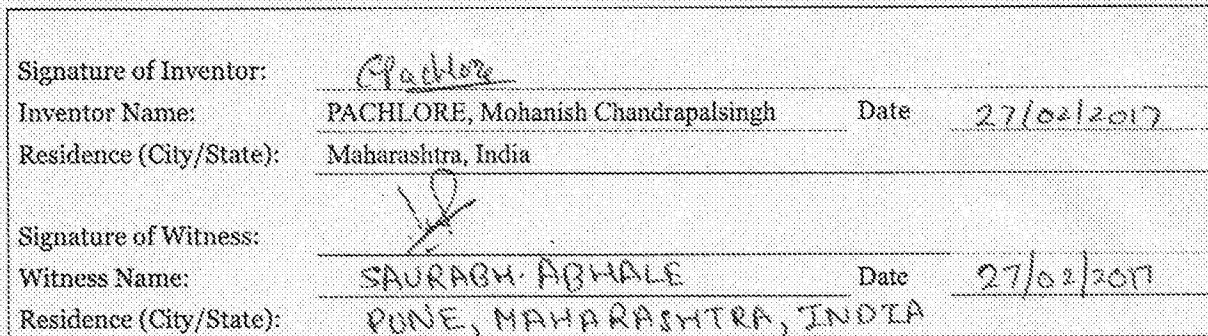 Signature of Inventor: CPachlore
Inventor Name: PACHLORE, Mohanish Chandrapalsingh Date 27/02/2017
Residence (City/State): Maharashtra, India
Signature of Witness:
Witness Name: SAURABH ABHALE Date 27/02/2017
Residence (City/State): PUNE, MAHARASHTRA, INDIA